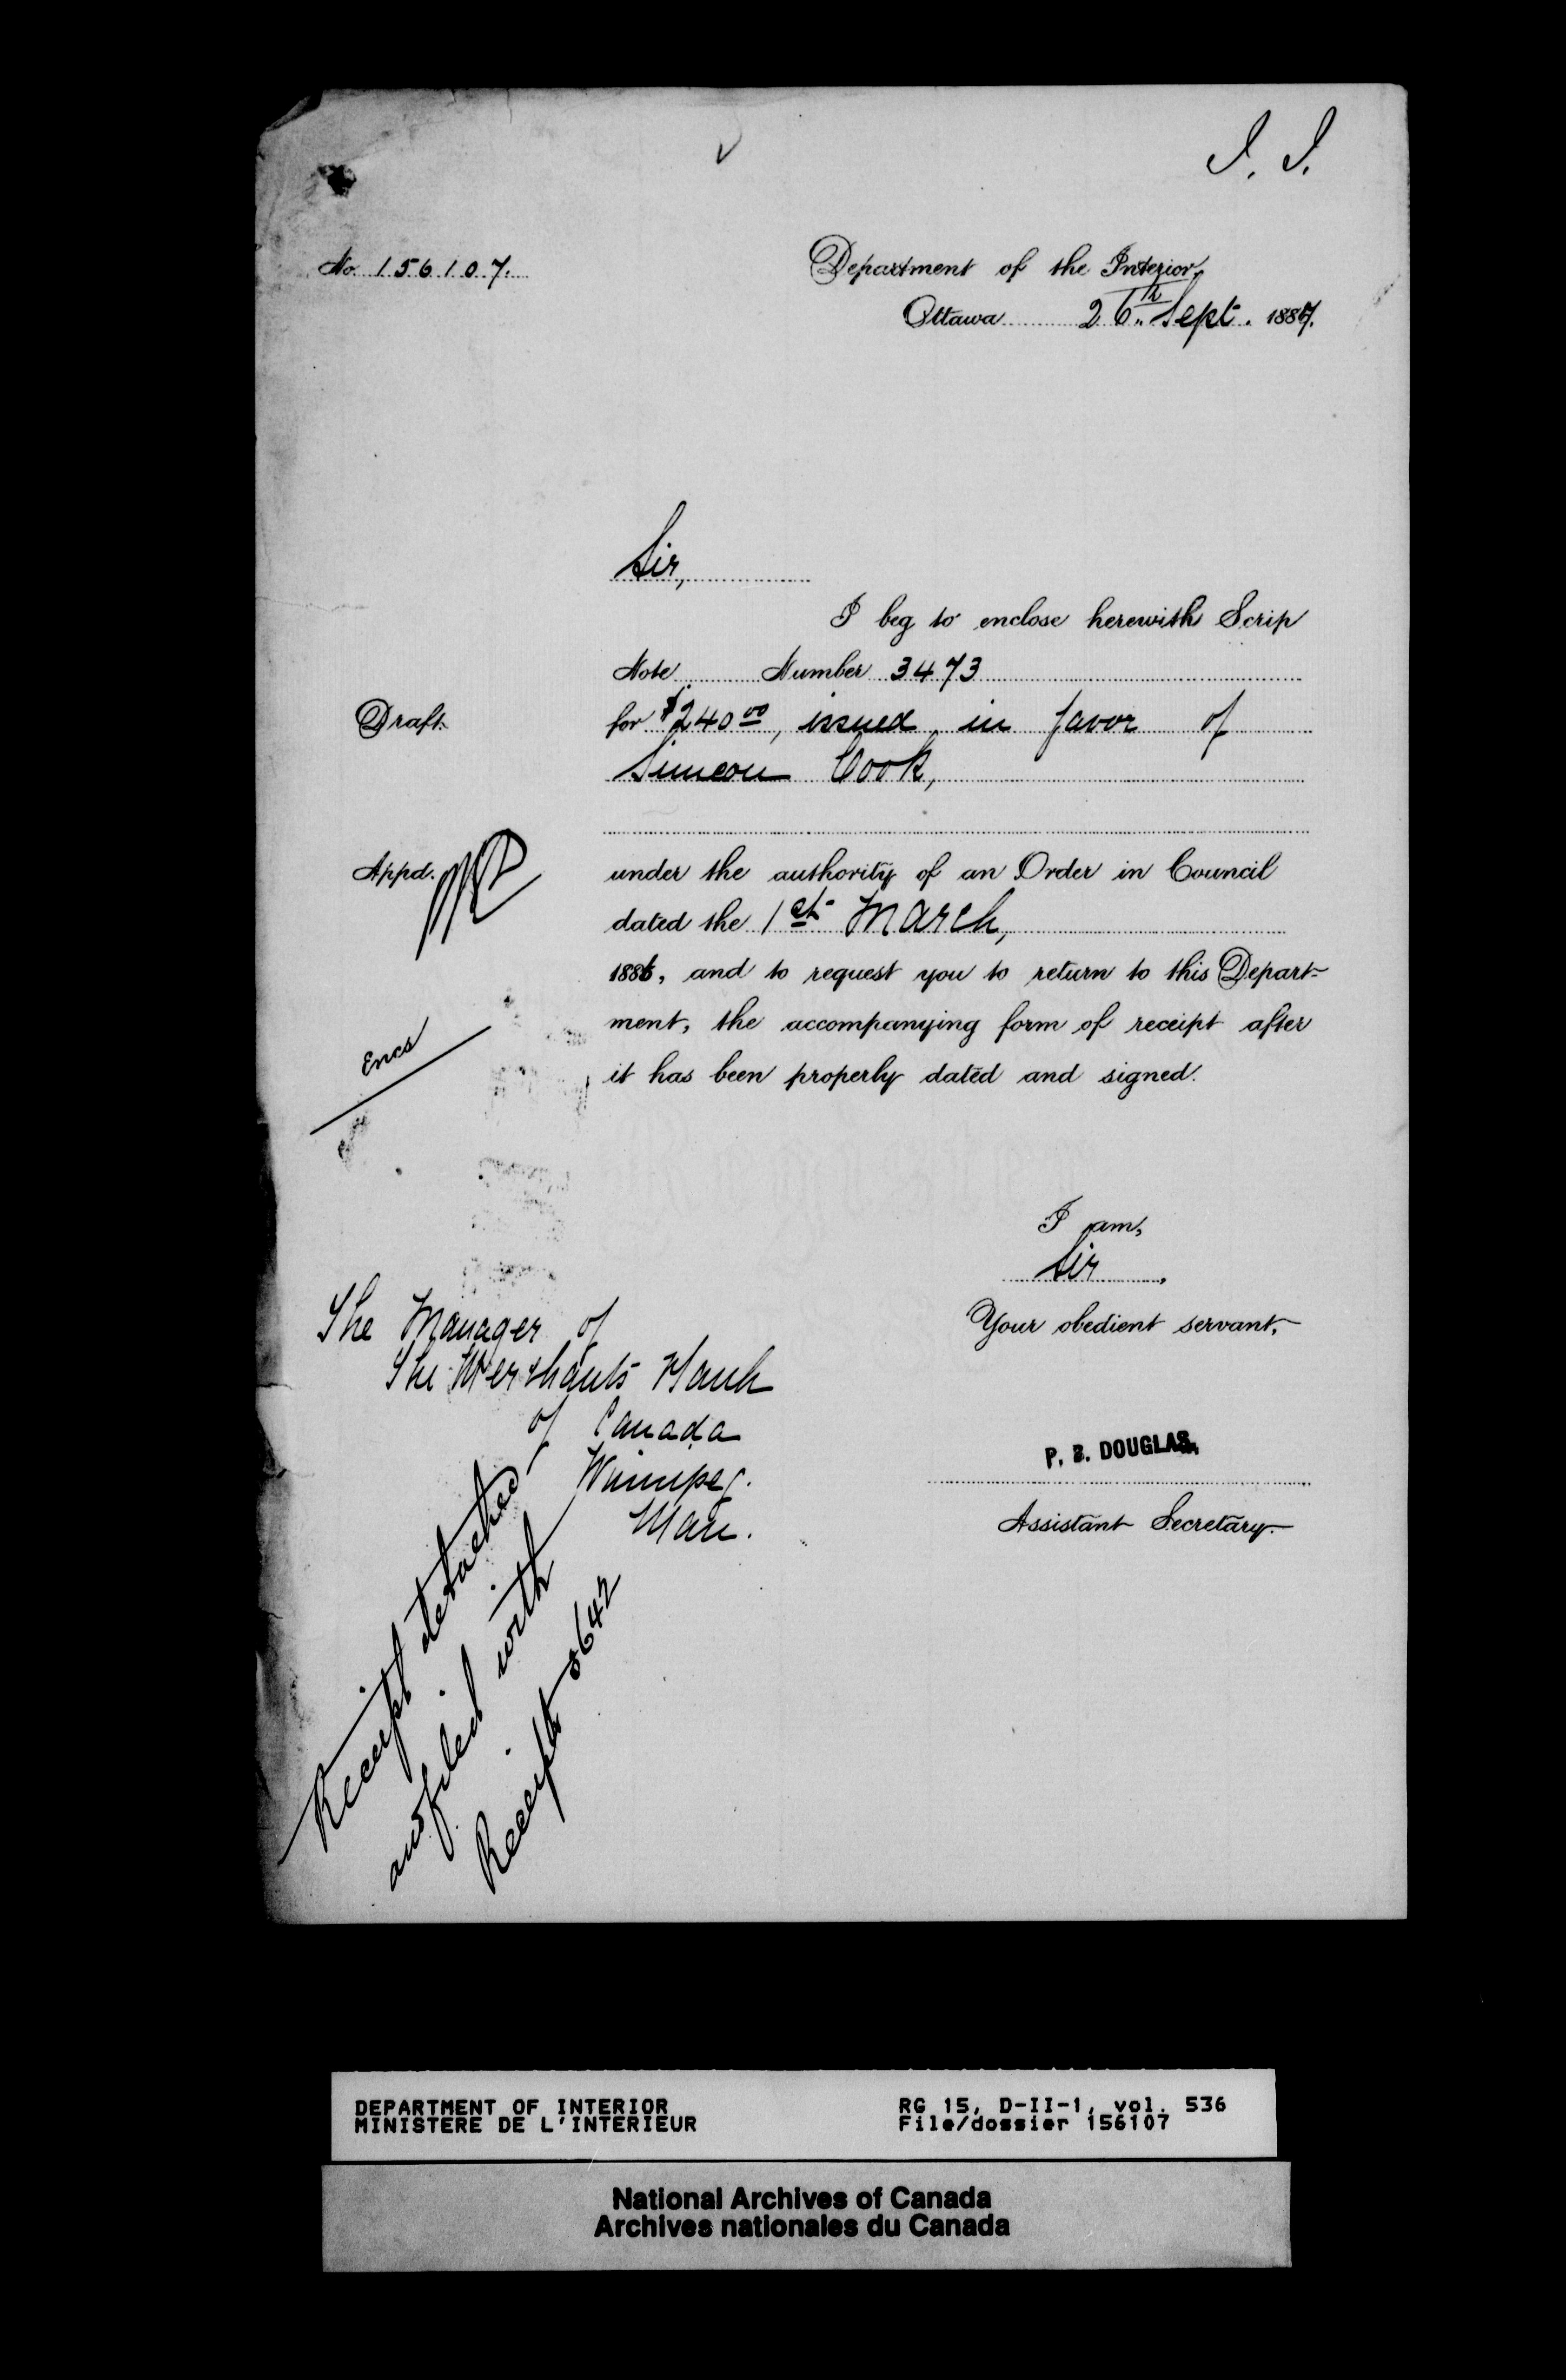 J. J.
No. 156107.
Department of the Interior,
Ottawa 26th Sept. 1887.
Sir,
I beg to enclose herewith Scrip
Note Number 3473
Draft.
for $240 00, issued in favor of
Simeon Cook,
Appd.
under the authority of an Order in Council
dated the 1st March,
1886, and to request you to return to this Depart-
ment, the accompanying form of receipt after
it has been properly dated and signed.
Encs
I am,
Sir,
Your obedient servant,
The Manager of
The Merchants Bank
of Canada
Winnipeg.
Man.
P. B. DOUGLAS,
Assistant Secretary.
Receipt detached
and filed with
Receipt 3642
DEPARTMENT OF INTERIOR
MINISTERE DE L'INTERIEUR
RG 15, D-II-1, vol. 536
File/dossier 156107
National Archives of Canada
Archives nationales du Canada